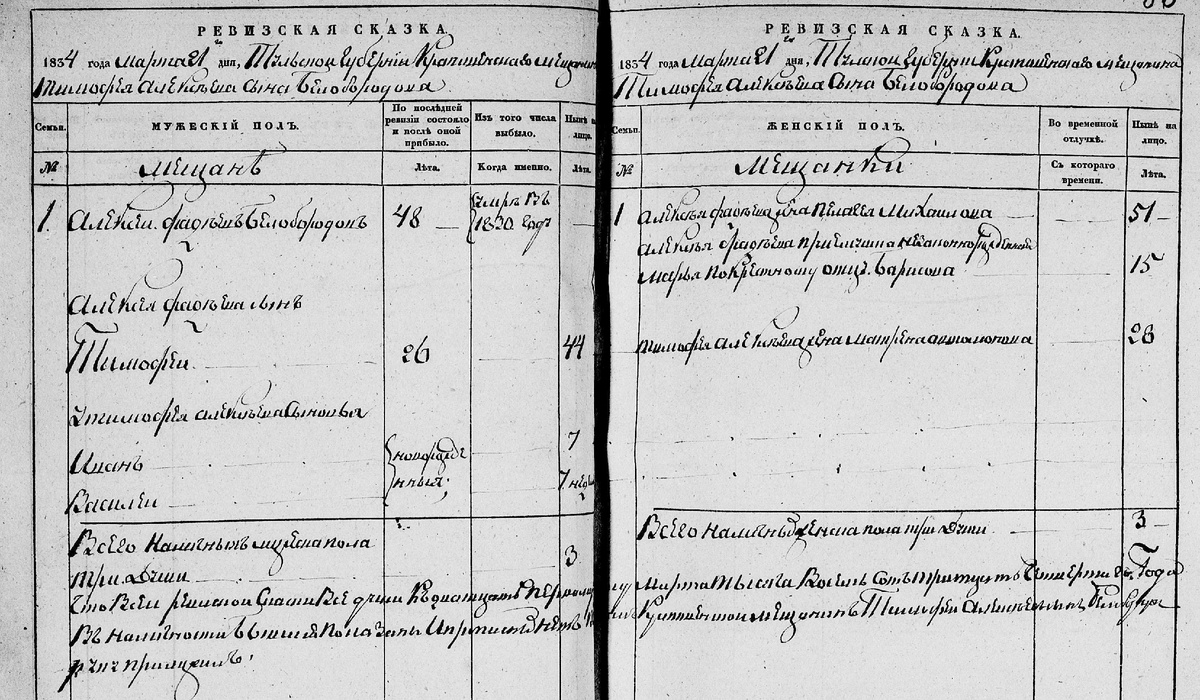 РЕВИЗСКАЯ СКАЗКА.
1834 года марта 21 дня, Тульской губерніи Крапивенскаго мещанина
Тимофея Алексѣева сына Белобородова
Семьи.
МУЖЕСКІЙ ПОЛЪ.
По послѣдней ревизіи состояло и послѣ оной прибыло.
Изъ того числа выбыло.
Нынѣ на лицо.
№
мещанѣ
Лѣта.
Когда именно.
Лѣта.
1
Алексѣй Фадѣевъ Белобородовъ
48
умре въ 1830 годѣ
Алексея Фадѣева сынъ
Тимофей
26
44
У Тимофея Алексѣева сыновья
Иванъ
новорожденныя
7
Василей
7 нед
Всего наличныхъ мужеска пола
три души
3
Что в сей ревиской все души къ
въ наличности
руку приложилъ
РЕВИЗСКАЯ СКАЗКА.
1834 года марта 21 дня, Тульской губерніи Крапивенскаго мещанина
Тимофея Алексѣева сына Белобородова
Семьи.
ЖЕНСКІЙ ПОЛЪ.
Во временной отлучкѣ.
Нынѣ на лицо.
№
мещанки
Съ котораго времени.
Лѣта.
1
Алексѣя Фадѣева жена Пелагея Михаилова
51
Алексѣя Фадѣева
Марья по крестному отцу Борисова
15
Тимофея Алексѣева жена Матрена Автомонова
28
Всего наличныхъ женска пола три души
3
Марта тысяча восемь сотъ тритцать четвертаго года
мещанинъ Тимофей Алексѣевъ